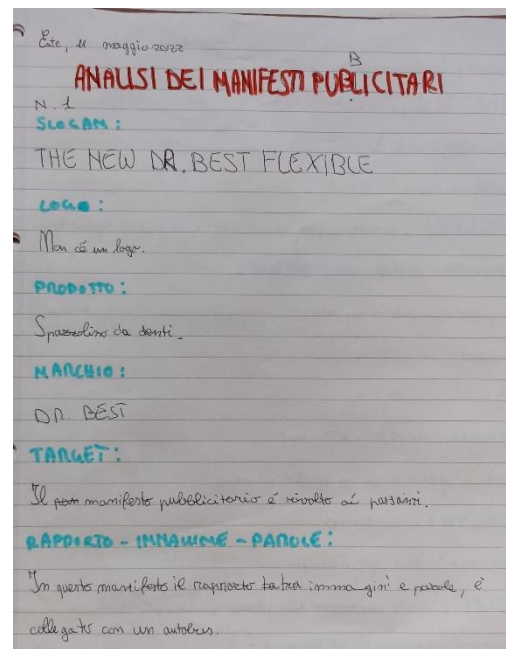 Este, 11 maggio 2022
B
ANALISI DEI MANIFESTI PUBLICITARI
N. 1
SLOGAN:
THE NEW DR. BEST FLEXIBLE
LOGO:
Non cé un logo.
PRODOTTO:
Spazzolino da denti.
MARCHIO:
DR. BEST
TARGET:
Il manifesto pubblicitario é rivolto ai passanti.
RAPPORTO - IMMAGINE - PAROLE:
In questo manifesto il rapporto tra immagini e parole, é
collegato con un autobus.